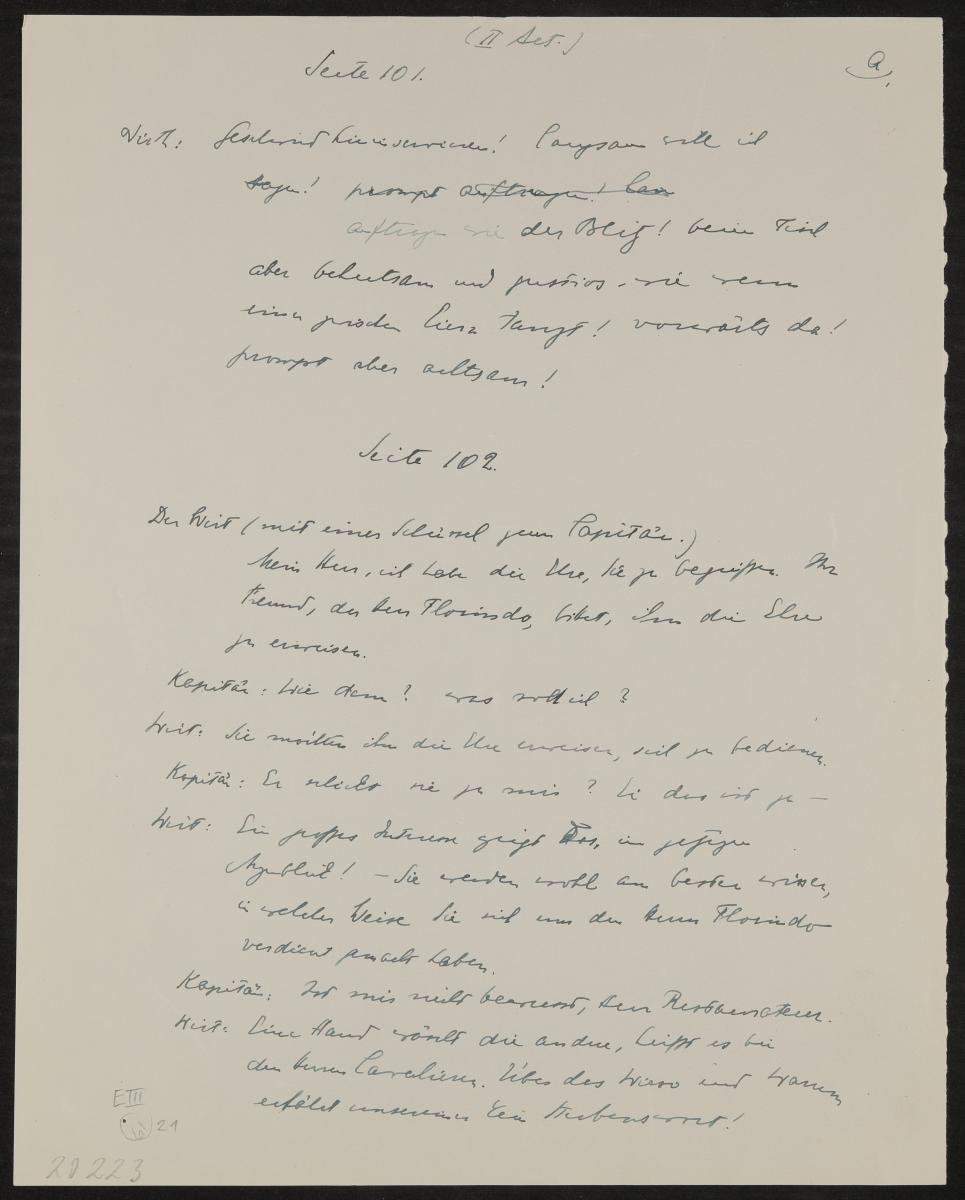 (II Act.)
a,
Seite 101.
Wirth: Geschwind hineinservieren! langsam will ich
sagen! prompt auftragen! lan
auftragen wie der Blitz! beim Tisch
aber behutsam und gustios. wie wenn
einer zwischen Eiern tanzt! vorwärts da!
prompt aber achtsam!
Seite 102.
Der Wirt (mit einer Schüssel zum Capitän.)
Mein Herr, ich habe die Ehre, Sie zu begrüssen. Ihr
Freund, der Herr Florindo, bittet, ihm die Ehre
zu erweisen.
Kapitän: Wie denn? was soll ich?
Wirt: Sie möchten ihm die Ehre erweisen, sich zu bedienen.
Kapitän: Er schickt sie zu mir? Ei das ist ja —
Wirt: Ein grosses Interesse zeigt das, im jetzigen
Augenblick! – Sie werden wohl am besten wissen,
in welcher Weise Sie sich um den Herrn Florindo
verdient gemacht haben.
Kapitän: Ist mir nicht bewusst, Herr Restaurateur.
Wirt: Eine Hand wäscht die andre, heisst es bei
den Herren Cavalieren. Über das Wieso und Warum
erfährt unsereiner kein Sterbenswort!
E III
21
20223